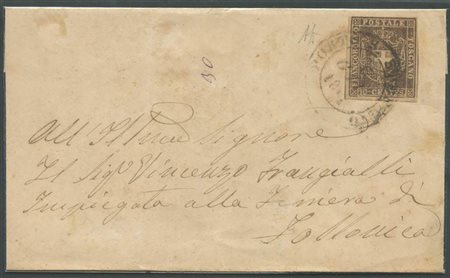 FRANCOBOLLO POSTALE TOSCANO
10 CENT
All' Illmo Signore
Il Sigr Vincenzo Frangialli
Impiegato alla
Follonica